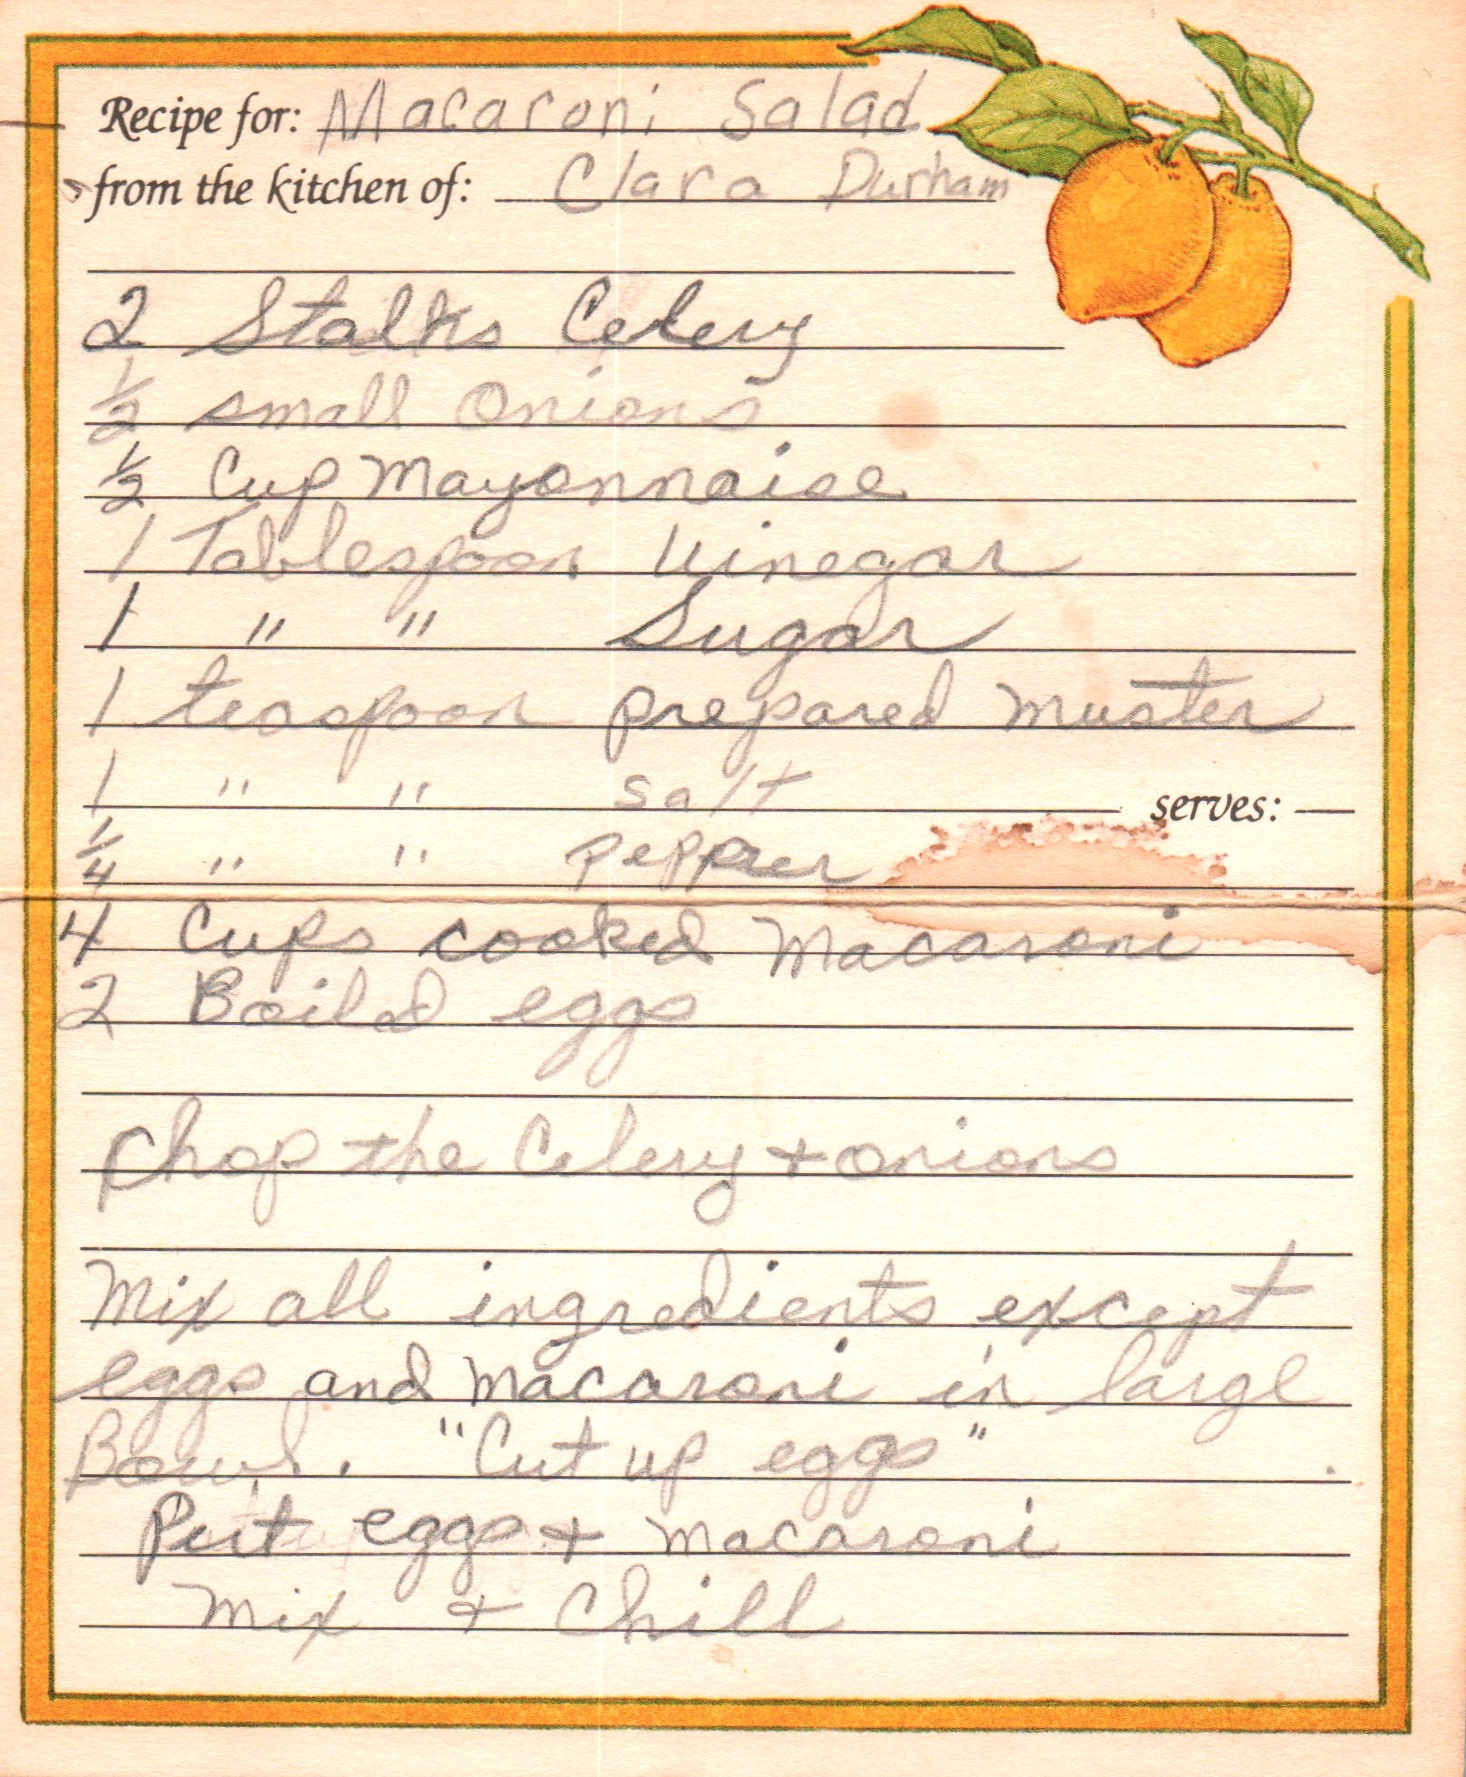 Recipe for: Macaroni Salad
from the kitchen of: Clara Durham
2 Stalks Celery
1/2 small Onions
1/2 Cup Mayonnaise
1 Tablespoon Vinegar
1 " " Sugar
1 teaspoon prepared muster
1 " " salt
serves:
1/4 " " pepper
4 Cups cooked Macaroni
2 Boiled eggs
Chop the Celery + onions
Mix all ingredients except
eggs and macaroni in large
Bowl. "Cut up eggs"
Put eggs + macaroni
Mix + Chill